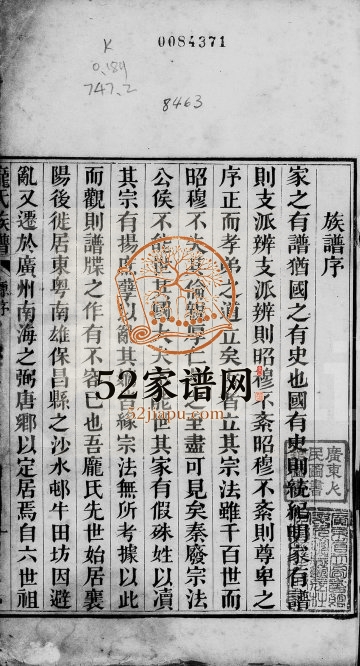 0084371
K
0.189
747.2
8463
族譜序
家之有譜猶國之有史也國有史則統紀明家有譜
則支派辨支派辨則昭穆不紊昭穆不紊則尊卑之
序正而孝弟之道立矣 者立其宗法雖千百世而
昭穆不失其倫親厚仁 之至盡可見矣秦廢宗法
公侯不能世其國大夫不能世其家有假殊姓以瀆
其宗有揚 孽以亂其 皆緣宗法無所考據以此
而觀則譜牒之作有不容已也吾龐氏先世始居襄
陽後徙居東粵南雄保昌縣之沙水邨牛田坊因避
亂又遷於廣州南海之弼唐鄉以定居焉自六世祖
龐氏族譜 序
廣東人民圖書
52家谱网
52jiapu.com